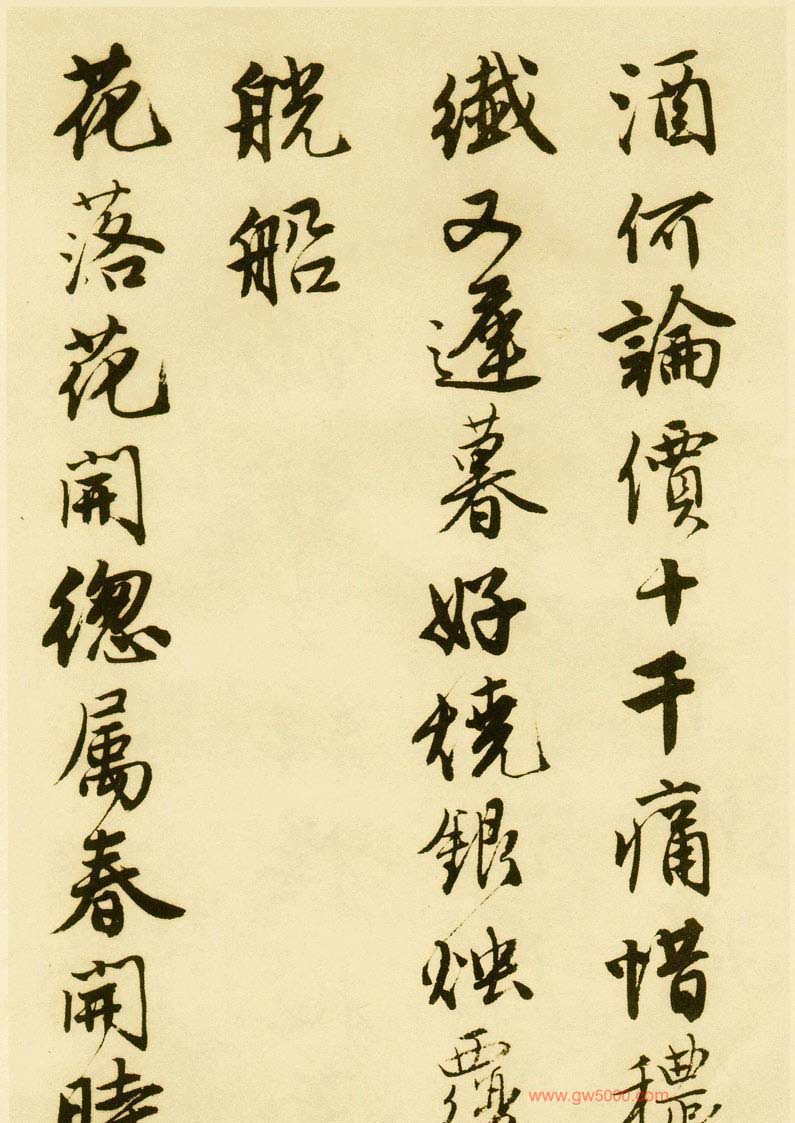 酒何論價十千痛惜穠
纖又遲暮好燒銀燭覆
觥船
花落花開總屬春開時
www.gw5000.com